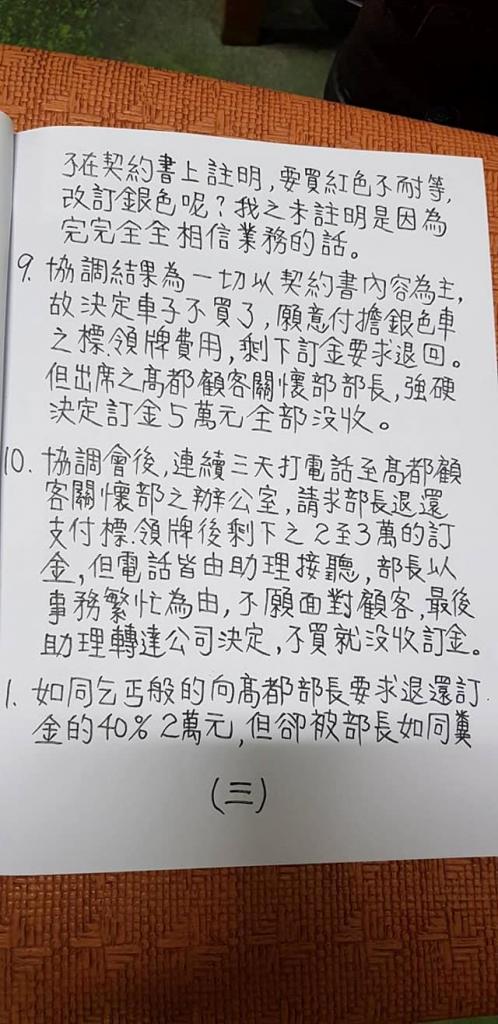 子在契約書上註明,要買紅色不耐等,
改訂銀色呢?我之未註明是因為
完完全全相信業務的話。
9. 協調結果為一切以契約書內容為主,
故決定車子不買了,願意付擔銀色車
之標.領牌費用,剩下訂金要求退回。
但出席之高都顧客關懷部部長,強硬
決定訂金5萬元全部没收。
10. 協調會後,連續三天打電話至高都顧
客關懷部之辦公室,請求部長退還
支付標.領牌後剩下之2至3萬的訂
金,但電話皆由助理接聽,部長以
事務繁忙為由,不願面對顧客,最後
助理轉達公司決定,不買就没收訂金。
1. 如同乞丐般的向高都部長要求退還訂
金的40% 2萬元,但卻被部長如同糞
(三)